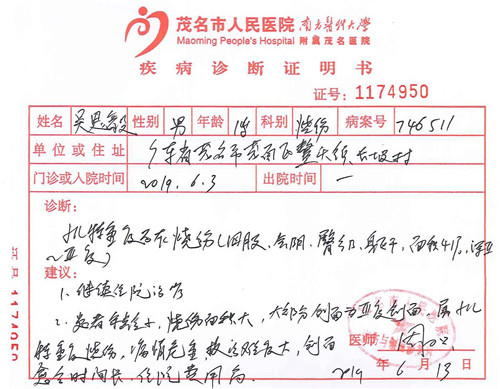 茂名市人民医院 南方医科大学
Maoming People's Hospital 附属茂名医院
疾病诊断证明书
证号：1174950
姓名 吴恩 性别 男 年龄 1岁 科别 烧伤 病案号 746511
单位或住址 广东省茂名市茂南区 村
门诊或入院时间 2019.6.3 出院时间 一
诊断：
儿 特重度 烧伤（ 会阴、臀部、 面积41%，深
建议：
1、继续住院治疗
2、患者年龄小，烧伤面积大，大部分创面为 创面，属儿
特重度烧伤，病情危重救治难度大，创面
愈合时间长，住院费用高。
医师
2019 年 6 月 13 日
证号1174950